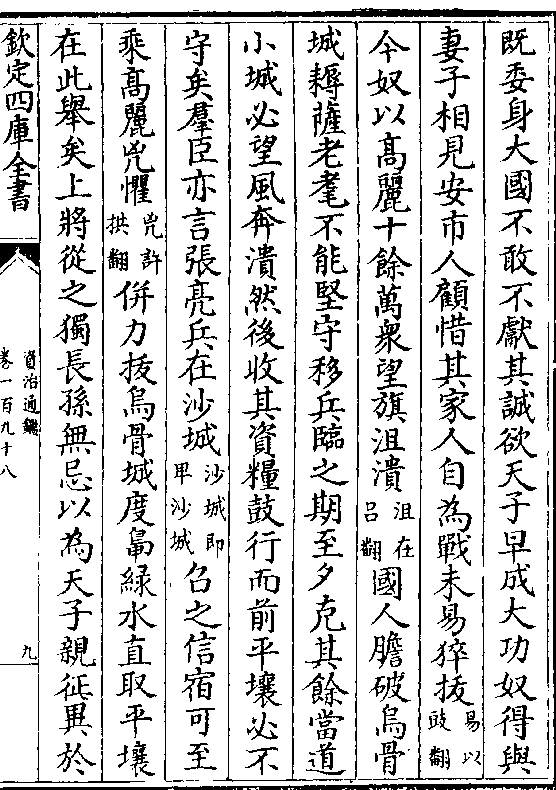 既委身大國不敢不獻其誠欲天子早成大功奴得與
妻子相見安市人顧惜其家人自為戰未易猝拔易以豉翻
今奴以髙麗十餘萬衆望旗沮潰沮在吕翻國人膽破烏骨
城耨薩老耄不能堅守移兵臨之朝至夕克其餘當道
小城必望風奔潰然後收其資糧鼓行而前平壤必不
守矣羣臣亦言張亮兵在沙城沙城即卑沙城召之信宿可至
乘髙麗兇懼兇許拱翻併力拔烏骨城度鴨緑水直取平壤
在此舉矣上將從之獨長孫無忌以為天子親征異於
欽定四庫全書
資治通鑑
卷一百九十八
九